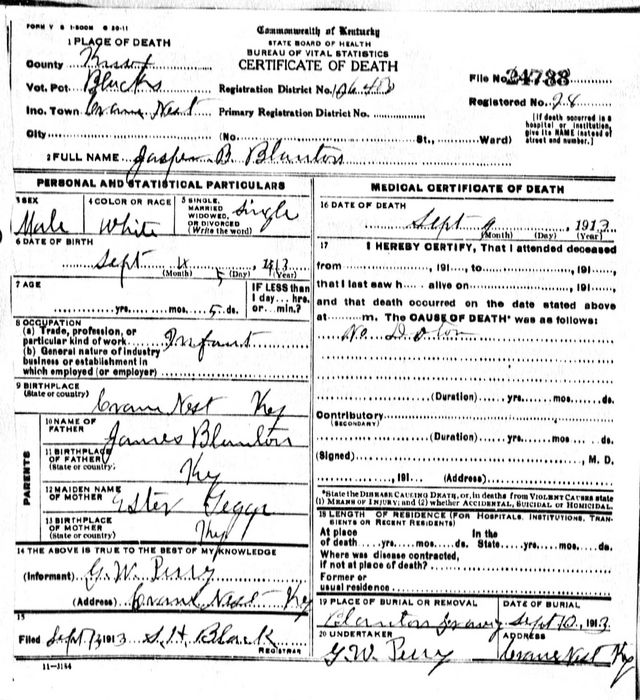 FORM V S 1-500M 6 20-11
Commonwealth of Kentucky
STATE BOARD OF HEALTH
BUREAU OF VITAL STATISTICS
CERTIFICATE OF DEATH
1 PLACE OF DEATH
County Knox
Vot. Pct. Blacks
Registration District No.
File No. 24788
Inc. Town Crane Nest
Primary Registration District No.
Registered No. 28
[If death occurred in a hospital or institution, give its NAME instead of street and number.]
City (No. St., Ward)
2 FULL NAME Jasper B. Blanton
PERSONAL AND STATISTICAL PARTICULARS
3 SEX Male
4 COLOR OR RACE White
5 SINGLE, MARRIED WIDOWED, OR DIVORCED (Write the word) Single
6 DATE OF BIRTH
Sept 4 1913
(Month) (Day) (Year)
7 AGE
yrs. mos. 5 ds.
IF LESS than 1 day... hrs. or... min.?
8 OCCUPATION
(a) Trade, profession, or particular kind of work Infant
(b) General nature of industry business or establishment in which employed (or employer)
9 BIRTHPLACE
(State or country)
Crane Nest Ky
PARENTS
10 NAME OF FATHER
James Blanton
11 BIRTHPLACE OF FATHER
(State or country)
Ky
12 MAIDEN NAME OF MOTHER
Ester
13 BIRTHPLACE OF MOTHER
(State or country)
Ky
14 THE ABOVE IS TRUE TO THE BEST OF MY KNOWLEDGE
(Informant) G.W. Perry
(Address) Crane Nest Ky
15
Filed Sept 1913 S. H. Black
REGISTRAR
11-3184
MEDICAL CERTIFICATE OF DEATH
16 DATE OF DEATH
Sept 9, 1913
(Month) (Day) (Year)
17 I HEREBY CERTIFY, That I attended deceased
from , 191 , to , 191 ,
that I last saw h alive on , 191 ,
and that death occurred on the date stated above
at m. The CAUSE OF DEATH* was as follows:
No Doctor
(Duration) yrs. mos. ds.
Contributory
(SECONDARY)
(Duration) yrs. mos. ds.
(Signed) , M. D.
, 191 (Address)
*State the DISEASE CAUSING DEATH, or, in deaths from VIOLENT CAUSES state
(1) MEANS OF INJURY; and (2) whether ACCIDENTAL, SUICIDAL or HOMICIDAL.
18 LENGTH OF RESIDENCE (FOR HOSPITALS, INSTITUTIONS, TRANSIENTS OR RECENT RESIDENTS)
At place of death yrs. mos. ds. In the State yrs. mos. ds.
Where was disease contracted,
if not at place of death?
Former or
usual residence
19 PLACE OF BURIAL OR REMOVAL
Blanton
DATE OF BURIAL
Sept 10, 1913
20 UNDERTAKER
G.W. Perry
ADDRESS
Crane Nest Ky